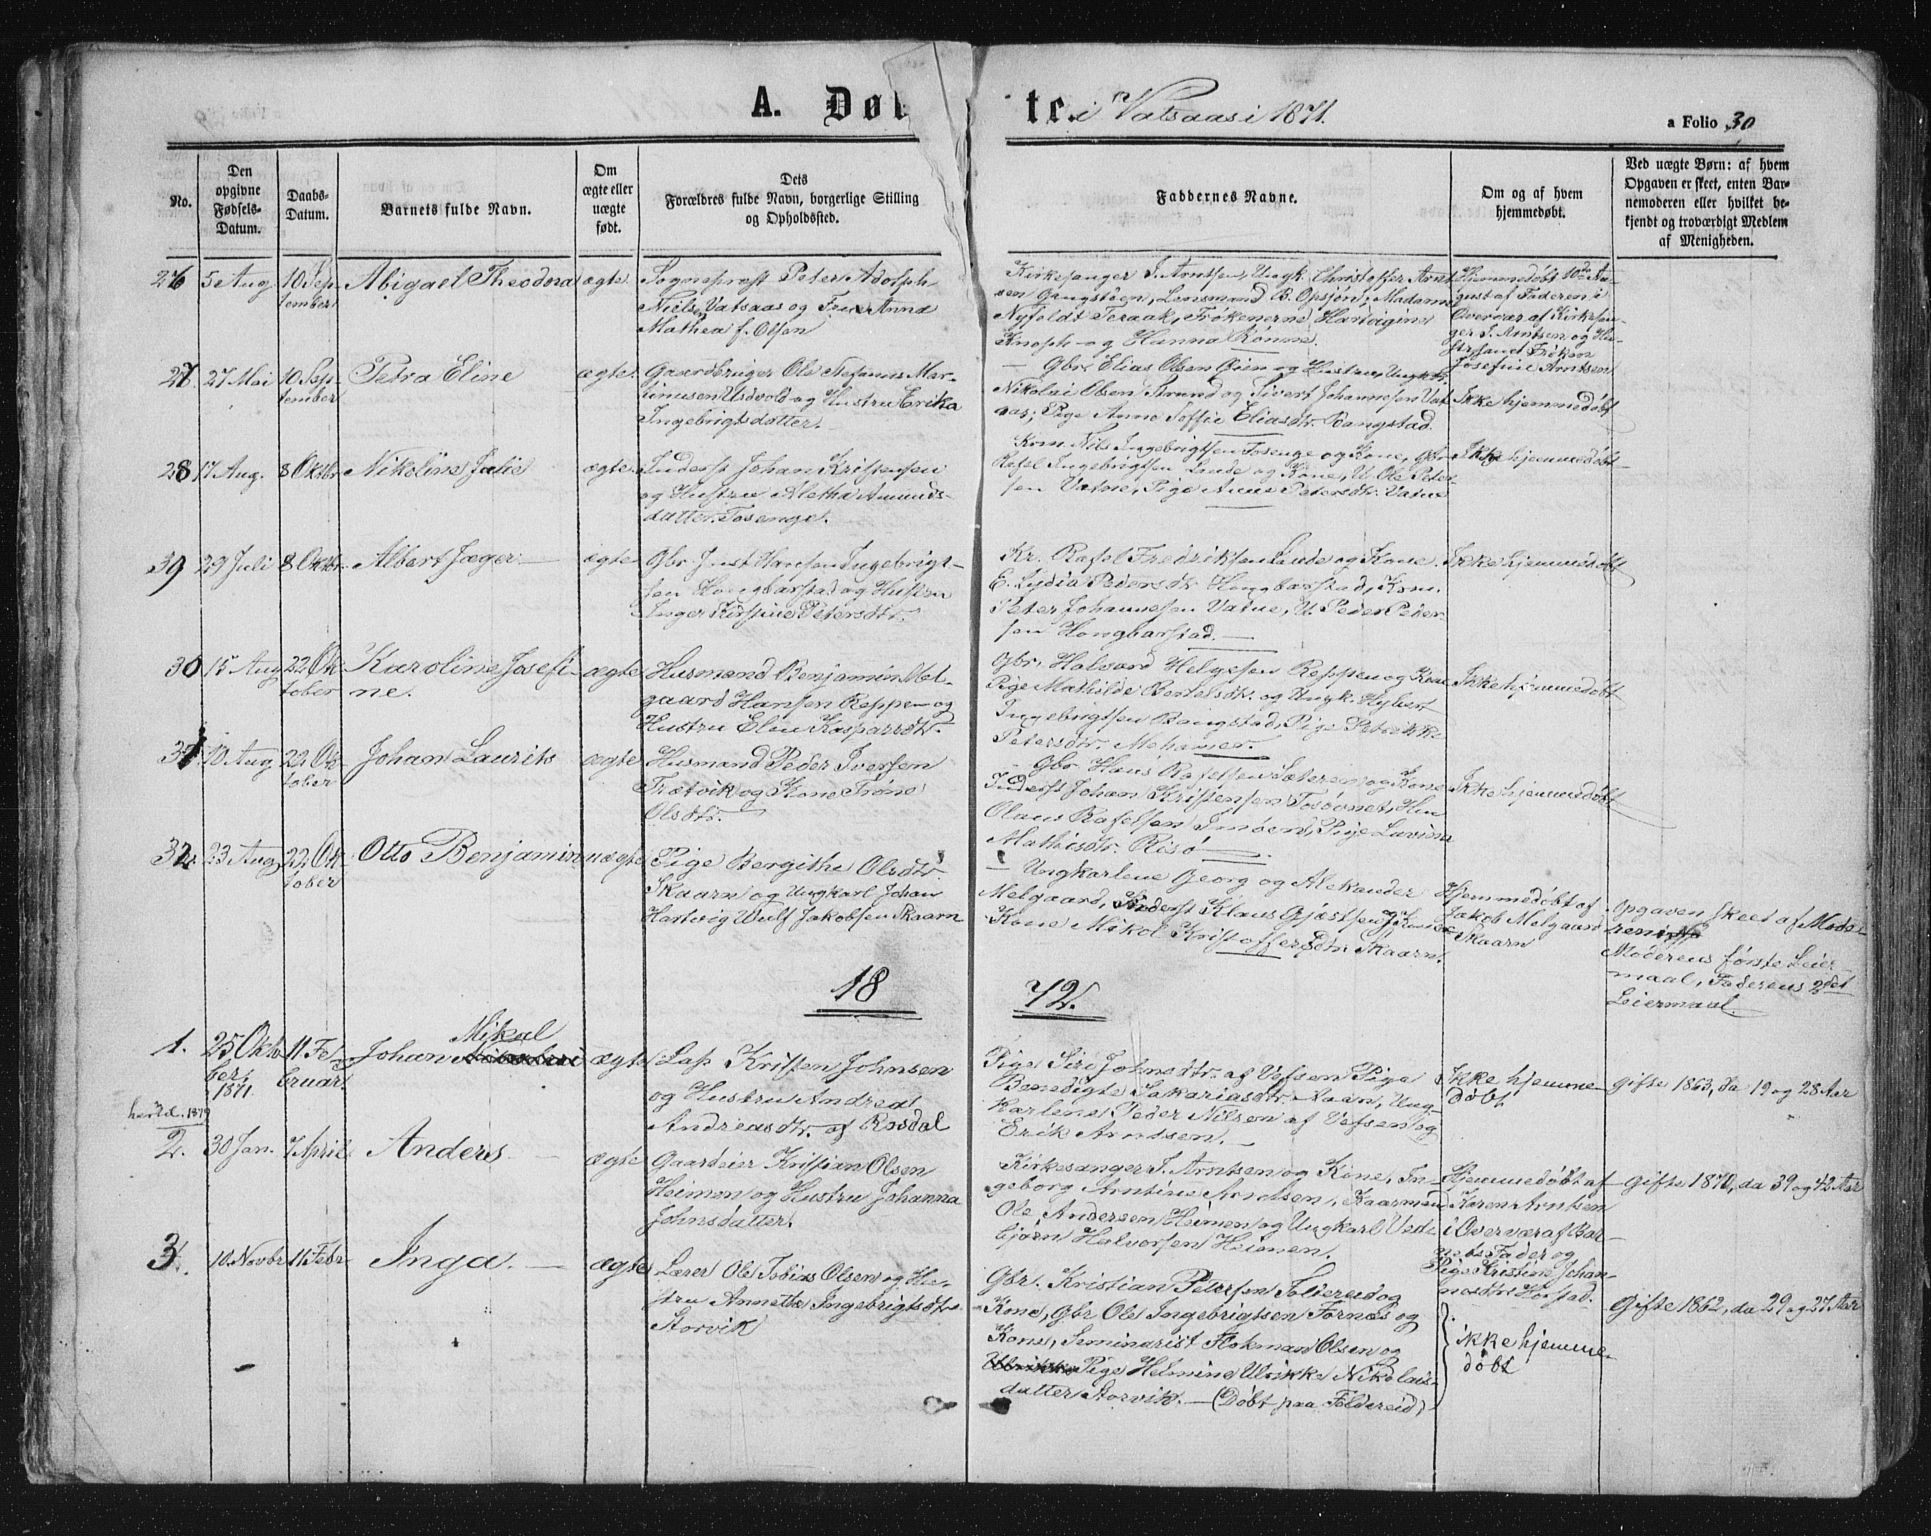 A. Døb te. i Vatsaas i 1871.
a Folio 30
No.
Den opgivne Fødsels-Datum.
Daabs-Datum.
Barnets fulde Navn.
Om ægte eller uægte født.
Dets Forældres fulde Navn, borgerlige Stilling og Opholdssted.
Faddernes Navne.
Om og af hvem hjemmedøbt.
Ved uægte Børn: af hvem Opgaven er skeet, enten Barnemoderen eller hvilket bekjendt og troværdigt Medlem af Menigheden.
26 5 Aug 10 September Abigael Theodora ægte.
Sogneprest Peter Adolph
Niels Vatsaas og Frue Anna
Mathea f. Olsen
Kirkesanger J. Arntsen, Ungk. Christoffer Arnt
sen Gangstøen, Lensmand B. Opsjøn, Madame
Nyfeldt Teraak, Frøkenerne Hartvigine
Knoph og Hanna Rømme.
Hjemmedøbt 10de Au-
gust af Faderen i
Overvær af Kirkesan-
ger J. Arntsen og Hu-
stru samt Frøken
Josefine Arntsen
27. 27 Mai 10 September Petra Eline ægte.
Gaardbruger Ole Mar-
tinusen Udvold og Hustru Erika
Ingebrigtsdatter.
Gbr. Elias Olsen Gien og Hustru, Ungk.
Nikolai Olsen Strand og Sivert Johannesen Vat
aas, Pige Anne Soffie Eliasdtr. Bangstad.
Ikke hjemmedøbt
28 17 Aug. 8 Oktbr Nikoline Julie ægte.
Inderst Johan Kristensen
og Hustru Aletha Amunds-
datter Tosenge.
Kom. Nils Ingebrigtsen Tosenge og Kone, Gbr
Rafel Ingebrigtsen Lande og Kone, U. Ole Peter
sen Vatne, Pige Anne Petersdtr. Vatne
Ikke hjemmedøbt
39 29 Juli 8 Oktbr. Albert Jæger. ægte
Gbr Just Hansen Ingebrigt-
sen Hongbarstad og Hustru
Inger Kirstine Petersdtr.
Kr. Rafel Fredriksen Lande og Kone.
E. Lydia Pedersdtr Hongbarstad, Kom.
Peter Johannesen Vatne, U. Peder Peder
sen Hongbarstad.
Ikke hjemmedøbt
30 15 Aug 22 Oktober Karoline Josefine. ægte
Husmand Benjamin Mel-
gaard Hansen Reppen og
Hustru Elen Kasparsdtr.
Gbr. Halvard Helgesen Reppen og Kone
Pige Mathilde Bertelsdtr. og Ungk. Hybert
Ingebrigtsen Bangstad, Pige Petrikke
Petersdtr. Mehamer.
Ikke hjemmedøbt
31. 10 Aug 22 Oktober Johan Laurits ægte
Husmand Peder Iversen
Trætvik og Kone Trone
Olsdtr.
Gbr Hans Rafelsen Sæteren og Kone
Inderst Johan Kristensen Tosovnet,
Olaus Rafelsen Imøen, Pige Lavina
Mathisdtr. Risø
Ikke hjemmedøbt
32. 23 Aug 22 Oktober Otto Benjamin uægte
Pige Bergithe Olsdtr.
Skaarn og Ungkarl Johan
Hartvig Wulf Jakobsen Skaarn
Ungkarlene Georg og Aleksander
Melgaard, Inderst Klaus Gjøstsen
Kone Mikol Kristoffersdtr. Skaarn.
Hjemmedøbt af
Jakob Melgaard
Skaarn
Opgaven skeet af Mode-
ren
Moderens første Leier
maal, Faderens 2det
Leiermaal.
18 72.
1. 25 Oktober 1871. 11 Februar Johan Mikal ægte
Lap Kristen Johnsen
og Hustru Andrea
Andreasdtr. af Rosdal
Pige Siri Johnsdtr. af Vefsen, Pige
Benedigte Sakariasdtr. Aaan, Ung-
karlene Peder Nilsen af Vefsen og
Erik Arntsen.
Ikke hjemme-
døbt
Gifte 1863, da 19 og 28 Aar
2. 30 Jan. 7 April Anders ægte
Gaardeier Kristian Olsen
Heimen og Hustru Johanna
Johnsdatter.
Kirkesanger J. Arntsen og Kone, In-
geborg Arntine Arntsen, Kaarmand
Ole Andersen Heimen og Ungkarl Veste
bjørn Halvorsen Heimen.
Hjemmedøbt af
Karen Arntsen
i Overvær af Bar-
nets Fader og
Pige Kristine Johan-
nesdtr. Horstad.
Gifte 1870, da 39 og 42 Aar
3. 10 Novbr 11 Febr Inga. ægte
Lærer Ole Tobias Olsen og Hu-
stru Annette Ingebrigtsdtr.
Storvik
Gbr. Kristian Petersen Foldereid og
Kone, Gbr Ole Ingebrigtsen Fornes og
Kone, Seminarist Flokman Olsen og
Pige Helmine Ulrikke Nikolais-
datter Storvik. (Døbt paa Foldereid)
ikke hjemme-
døbt
Gifte 1862, da 29 og 27 Aar